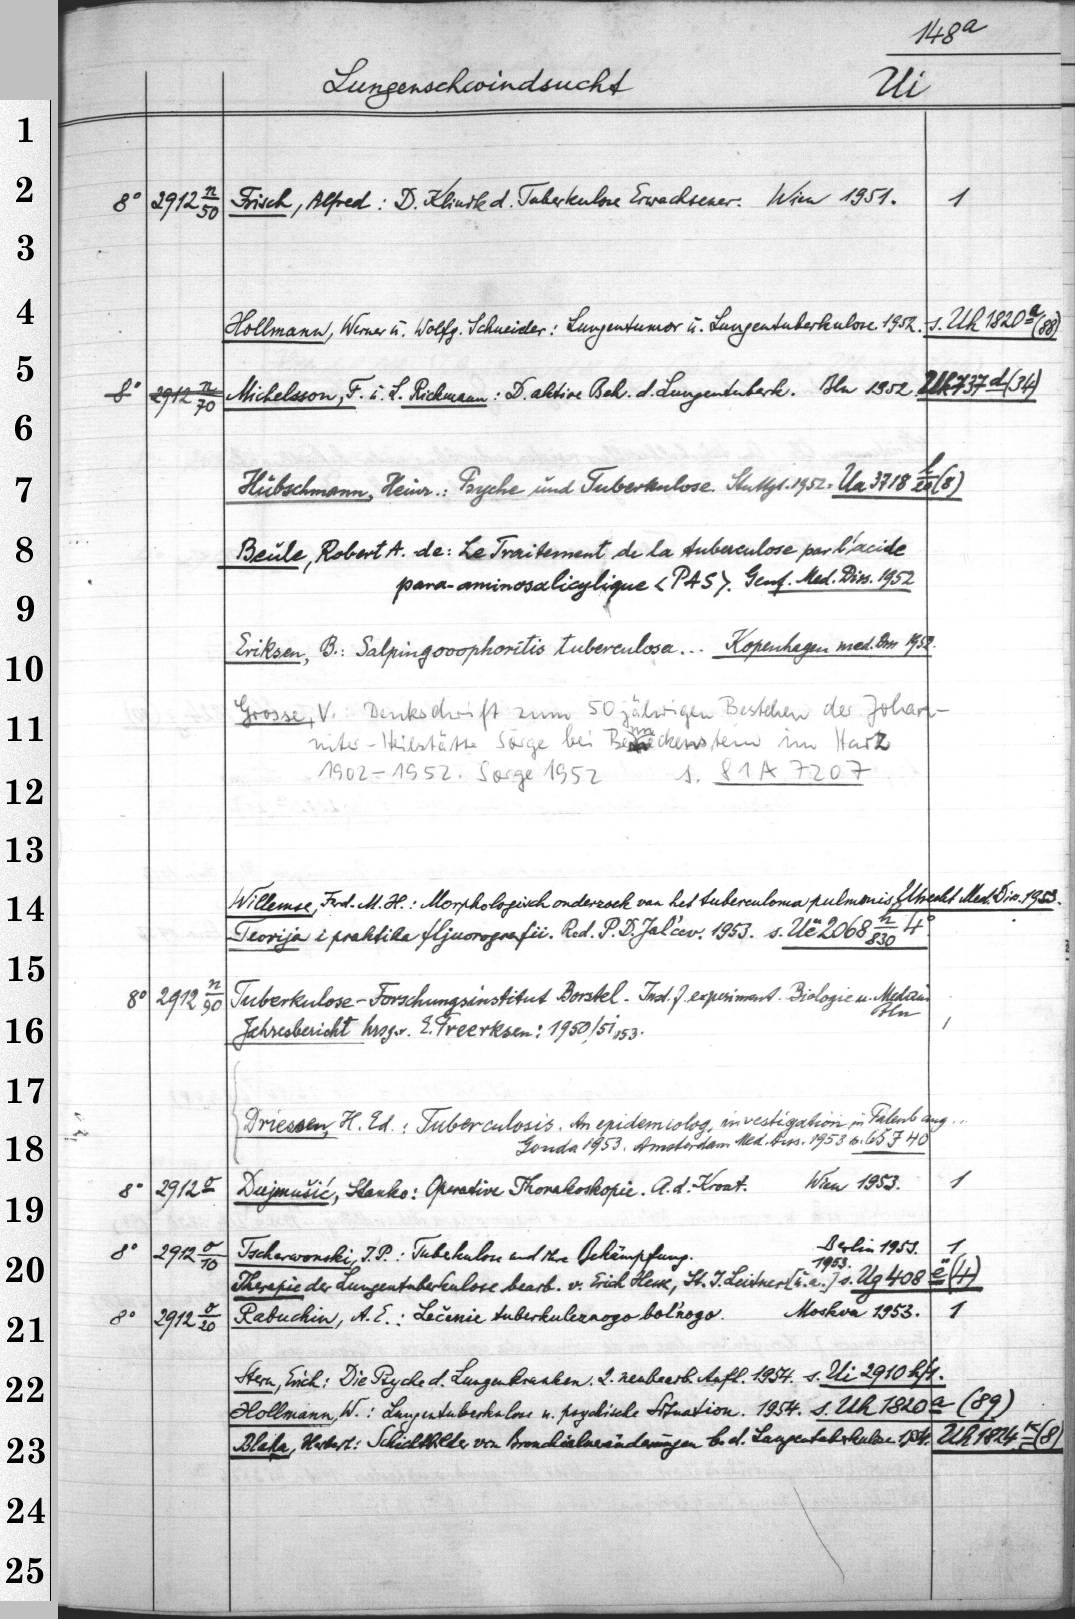 148a
Lungenschwindsucht Ui
1
2
8° 2912 n/50 Frisch, Alfred: D. Klinik d. Tuberkulose Erwachsener. Wien 1951. 1
3
4
Hollmann, Werner u. Wolfg. Schneider: Lungentumor u. Lungentuberkulose. 1952. s. Uh 1820 a (88)
5
8° 2912 n/70 Michelsson, F. u. L. Rickmann: D. aktive Beh. d. Lungentuberk. Bln 1952. Uk 737 d (34)
6
7
Hübschmann, Heinr.: Psyche und Tuberkulose. Stuttgt. 1952. Ua 3718 (8)
8
Beule, Robert A. de: Le Traitement de la tuberculose par l'acide
para-aminosalicylique <PAS>. Genf. Med. Diss. 1952
9
10
Eriksen, B.: Salpingooophoritis tuberculosa... Kopenhagen med. Diss 1952.
11
Grosse, V.: Denkschrift zum 50 jährigen Bestehen der Johan-
niter-Heilstätte Sorge bei Benneckenstein im Harz
1902-1952. Sorge 1952 s. 81 A 7207
12
13
14
Willemse, Ferd. M. H.: Morphologisch onderzoek van het tuberculoma pulmonis, Utrecht Med. Diss. 1953.
Teorija i praktika fljuorografii. Red. P. D. Jal'cev. 1953. s. Uë 2068 n/830 4°
15
8° 2912 n/90 Tuberkulose-Forschungsinstitut Borstel - Inst. f. experiment. Biologie u. Medizin
Bln
16
Jahresbericht hrsg. v. E. Freerksen: 1950/51, 53. 1
17
Driessen, H. Ed.: Tuberculosis. An epidemiolog. investigation in Palembang...
18
Gouda 1953. Amsterdam Med. Diss. 1953 s. 65 J 40
8° 2912 o Dujmušić, Stanko: Operative Thorakoskopie. A. d. Kroat. Wien 1953. 1
19
8° 2912 o/10 Tscherwonski, I. P.: Tuberkulose und ihre Bekämpfung. Berlin 1953. 1
20
Therapie der Lungentuberkulose bearb. v. Erich Hesse, St. J. Leitner [u. a.] 1953. s. Ug 408 e (4)
21
8° 2912 o/20 Rabuchin, A. E.: Lečenie tuberkuleznogo bol'nogo. Moskva 1953. 1
22
Stern, Erich: Die Psyche d. Lungenkranken. 2. neubearb. Aufl. 1954. s. Ui 2910 h/1.
Hollmann, W.: Lungentuberkulose u. psychische Situation. 1954. s. Uh 1820 a (89)
23
Blaha, Herbert: Schichtbilder von Bronchialveränderungen b. d. Lungentuberkulose 1954. Uh 1824 (8)
24
25